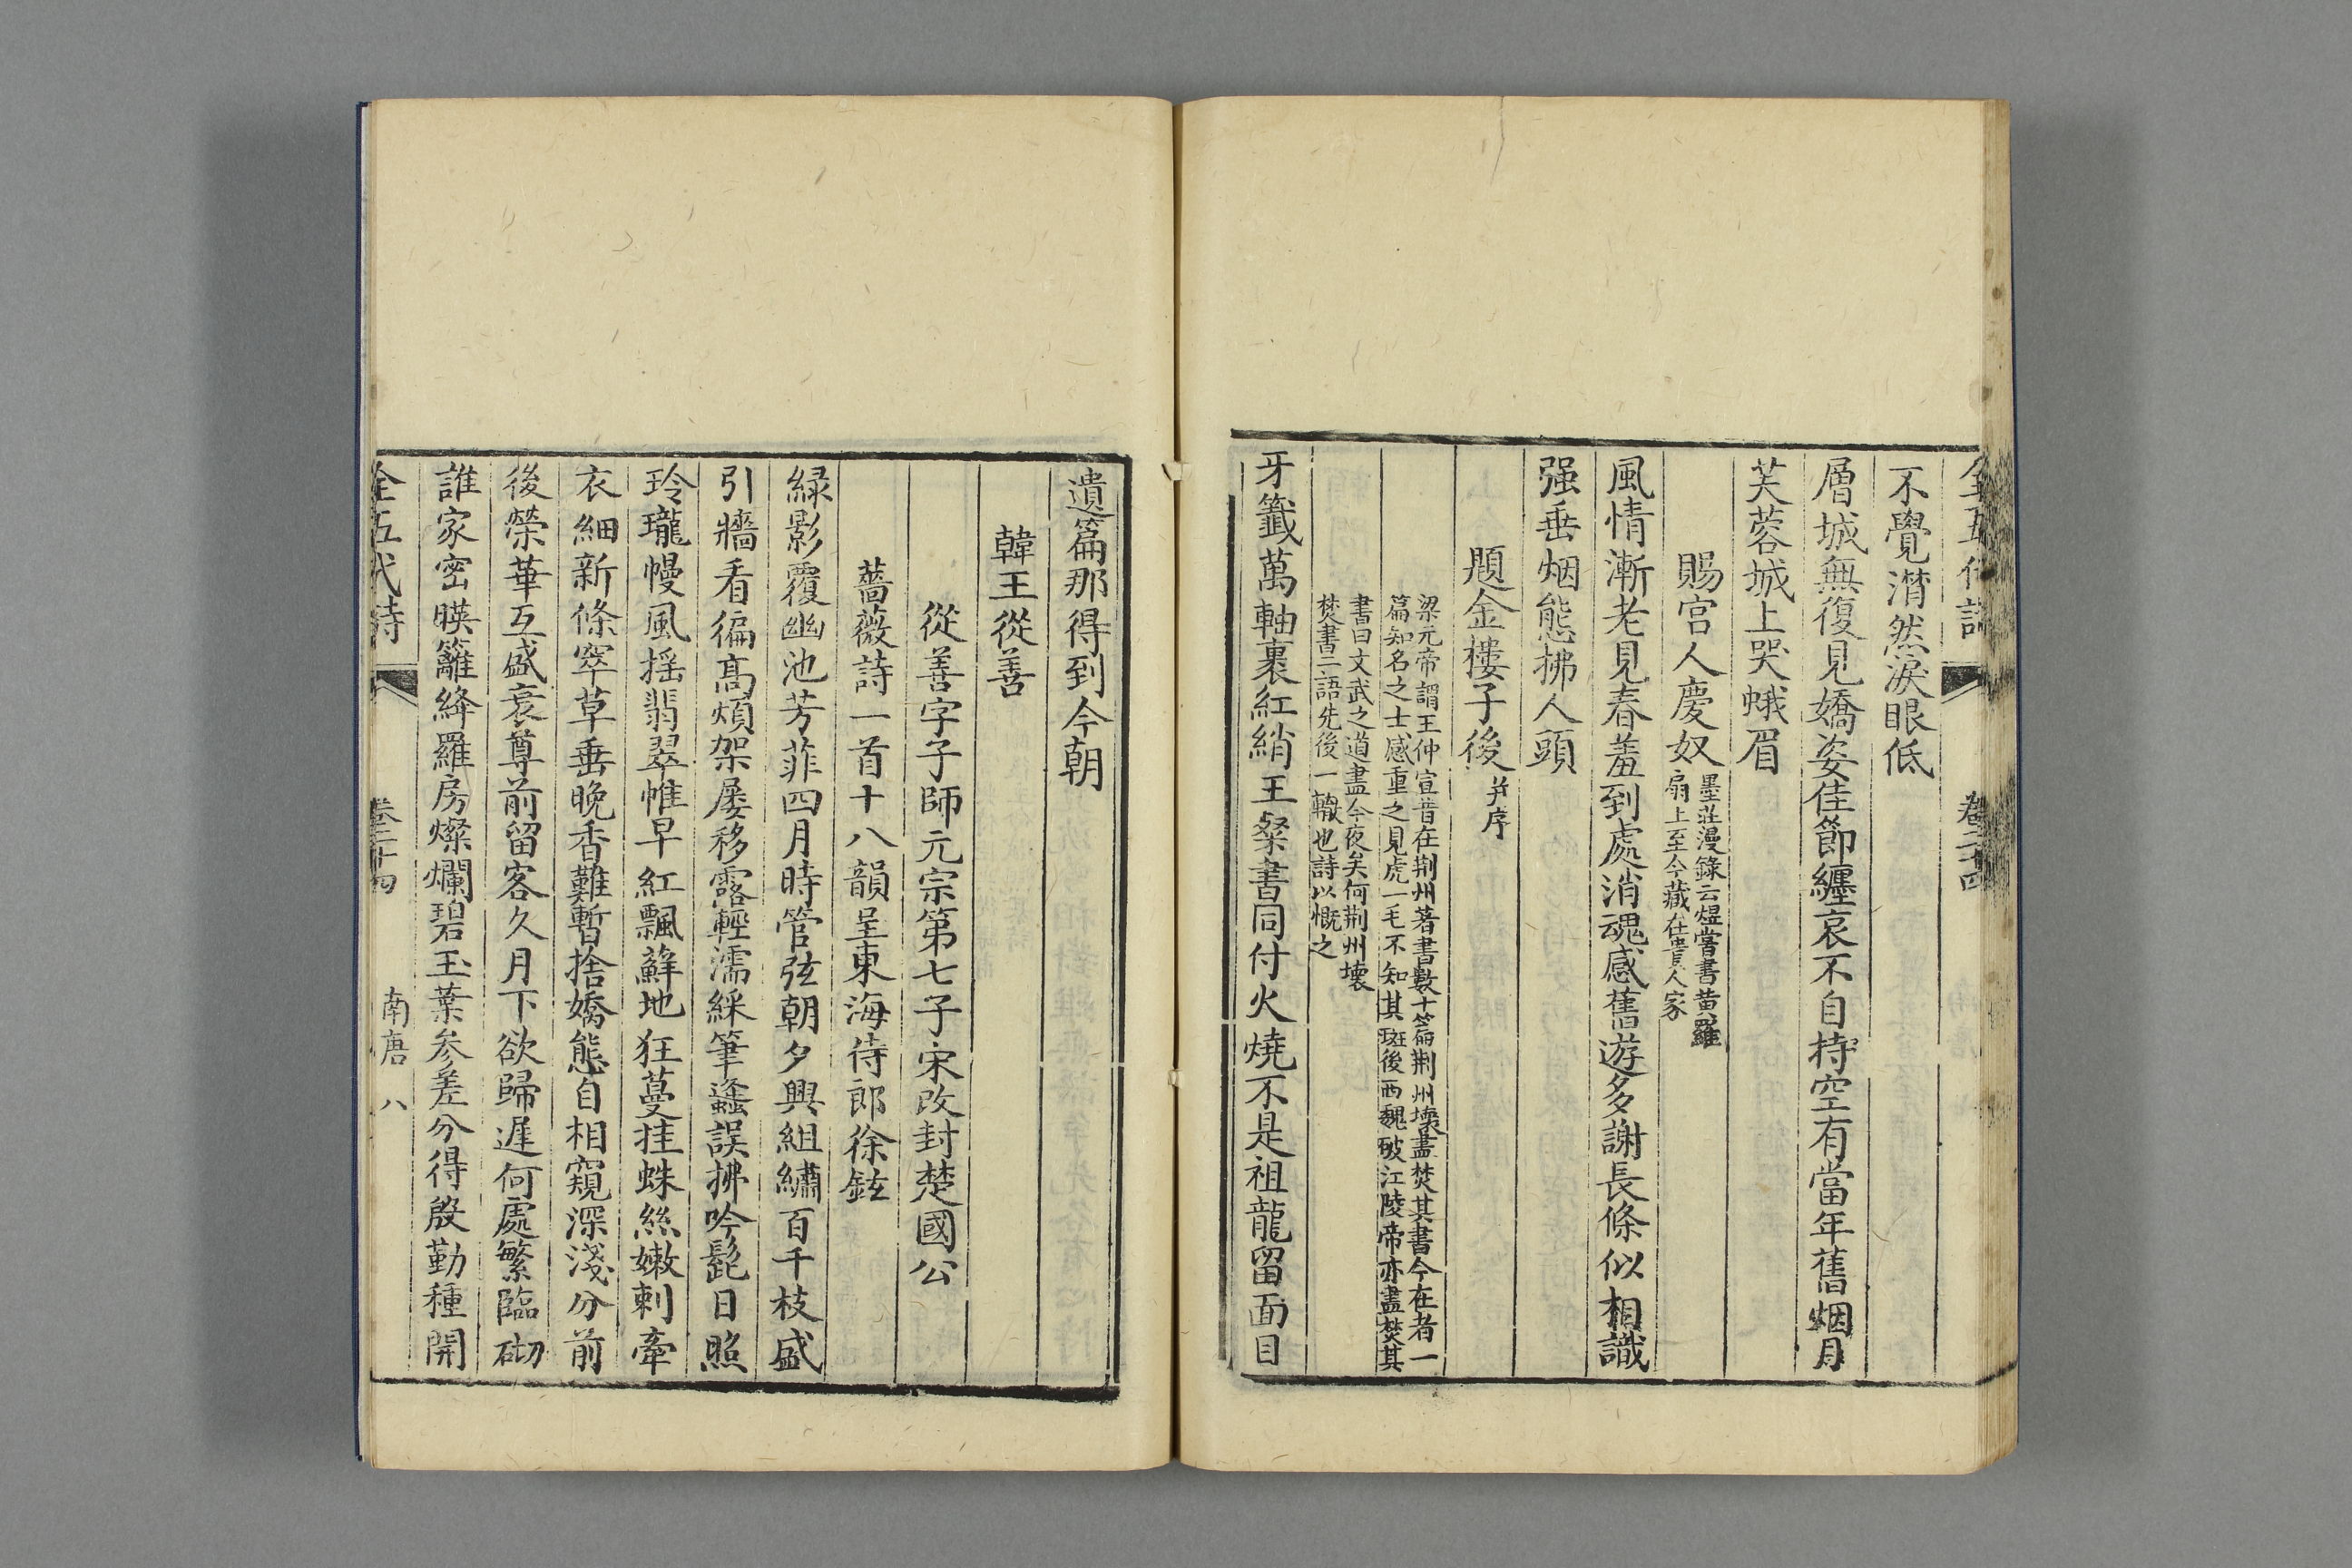 全五代詩
卷二十四
不覺潸然淚眼低
層城無復見嬌姿佳節纏哀不自持空有當年舊烟月
芙蓉城上哭蛾眉
賜宮人慶奴
墨莊漫錄云煜嘗書黃羅
扇上至今藏在貴人家
風情漸老見春羞到處消魂感舊遊多謝長條似相識
强垂烟態拂人頭
題金樓子後
并序
梁元帝謂王仲宣昔在荆州著書數十篇荆州壞盡焚其書今在者一
篇知名之士咸重之見虎一毛不知其斑後西魏破江陵帝亦盡焚其
書曰文武之道盡今夜矣何荆州壞
焚書二語先後一轍也詩以慨之
牙籤萬軸裹紅綃王粲書同付火燒不是祖龍留面目
遺篇那得到今朝
韓王從善
從善字子師元宗第七子宋改封楚國公
薔薇詩一首十八韻呈東海侍郎徐鉉
綠影覆幽池芳菲四月時管弦朝夕興組繡百千枝盛
引牆看徧高煩架屢移露輕濡綵筆蠭誤拂吟髭日照
玲瓏幔風摇翡翠帷早紅飄蘚地狂蔓挂蛛絲嫩刺牽
衣細新條窣草垂晚香難暫捨嬌態自相窺深淺分前
後榮華互盛衰尊前留客久月下欲歸遲何處繁臨砌
誰家密暎籬絳羅房燦爛碧玉葉参差分得殷勤種開
全五代詩
卷二十四
南唐
八